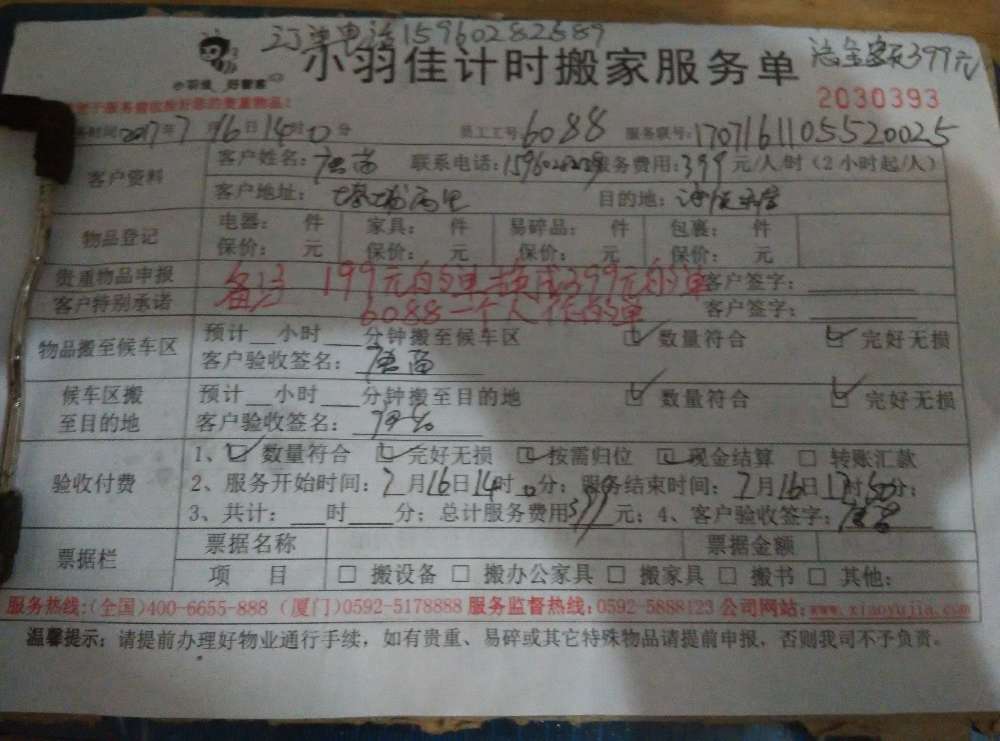 订单电话15960282589
小羽佳计时搬家服务单
399元
小羽佳 好管家
2030393
务时间2017年7月16日14时0分 员工工号6088 服务联号:1707161105520025
客户资料
客户姓名: 联系电话: 服务费用:399元/人/时(2小时起/人)
客户地址: 目的地:
物品登记
电器: 件 家具: 件 易碎品: 件 包裹: 件
保价: 元 保价: 元 保价: 元 保价: 元
贵重物品申报 客户签字:
备注 199元的单换成399元的单
客户特别承诺 客户签字:
6088一个人作的单
物品搬至候车区
预计__小时___分钟搬至候车区 ☑数量符合 ☑完好无损
客户验收签名:
候车区搬至目的地
预计__小时___分钟搬至目的地 ☑数量符合 ☑完好无损
客户验收签名:
验收付费
1、☑数量符合 ☑完好无损 ☑按需归位 ☑现金结算 □转账汇款
2、服务开始时间:7月16日14时0分;服务结束时间:7月16日17时50分;
3、共计:___时___分;总计服务费用399元;4、客户验收签字:
票据栏
票据名称 票据金额
项 目 □搬设备 □搬办公家具 □搬家具 □搬书 □其他:
服务热线:(全国)400-6655-888 (厦门)0592-5178888 服务监督热线:0592-5888123 公司网站:www.xiaoyujia.com
温馨提示:请提前办理好物业通行手续,如有贵重、易碎或其它特殊物品请提前申报,否则我司不予负责。